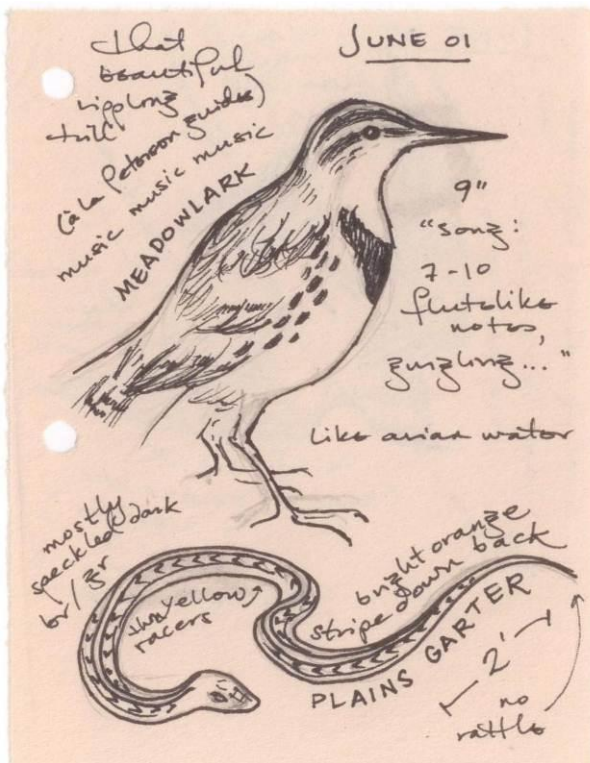 JUNE 01
that
beautiful
rippling
trill
(à la Peterson guides)
music music music
MEADOWLARK
9"
"song:
7-10
flutelike
notes,
gurgling..."
like avian water
mostly
speckled dark
br/gr
thin yellow
racers
bright orange
stripe down back
PLAINS GARTER
2'
no
rattle